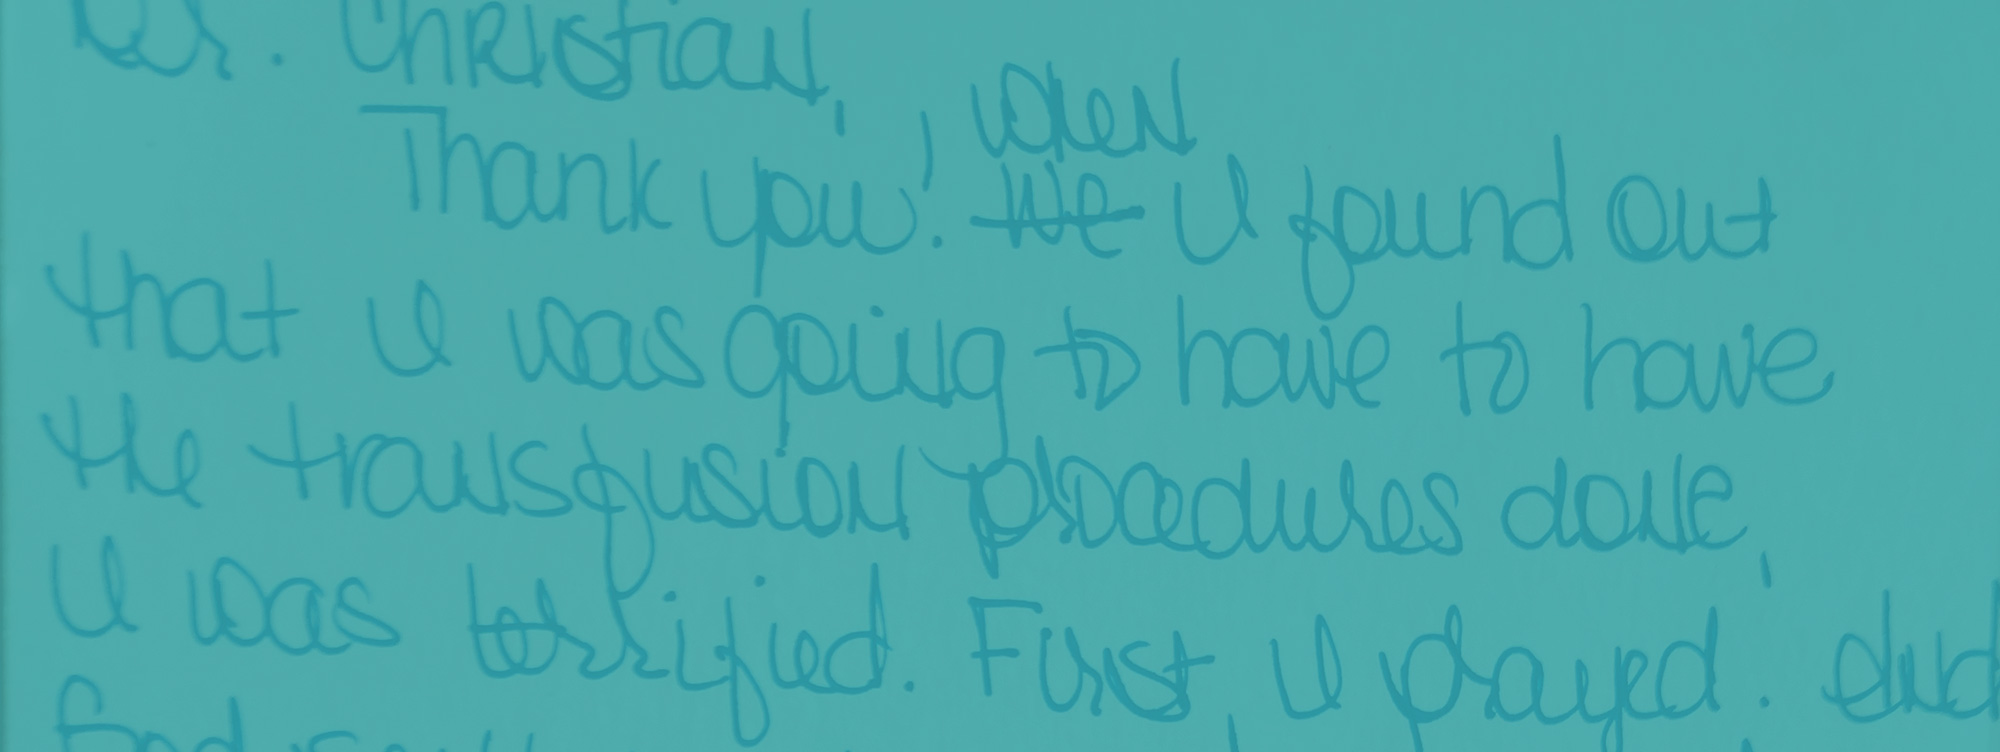 Dr. Christian,
Thank you! When
We I found out
that I was going to have to have
the transfusion procedures done,
I was terrified. First, I prayed. And
God